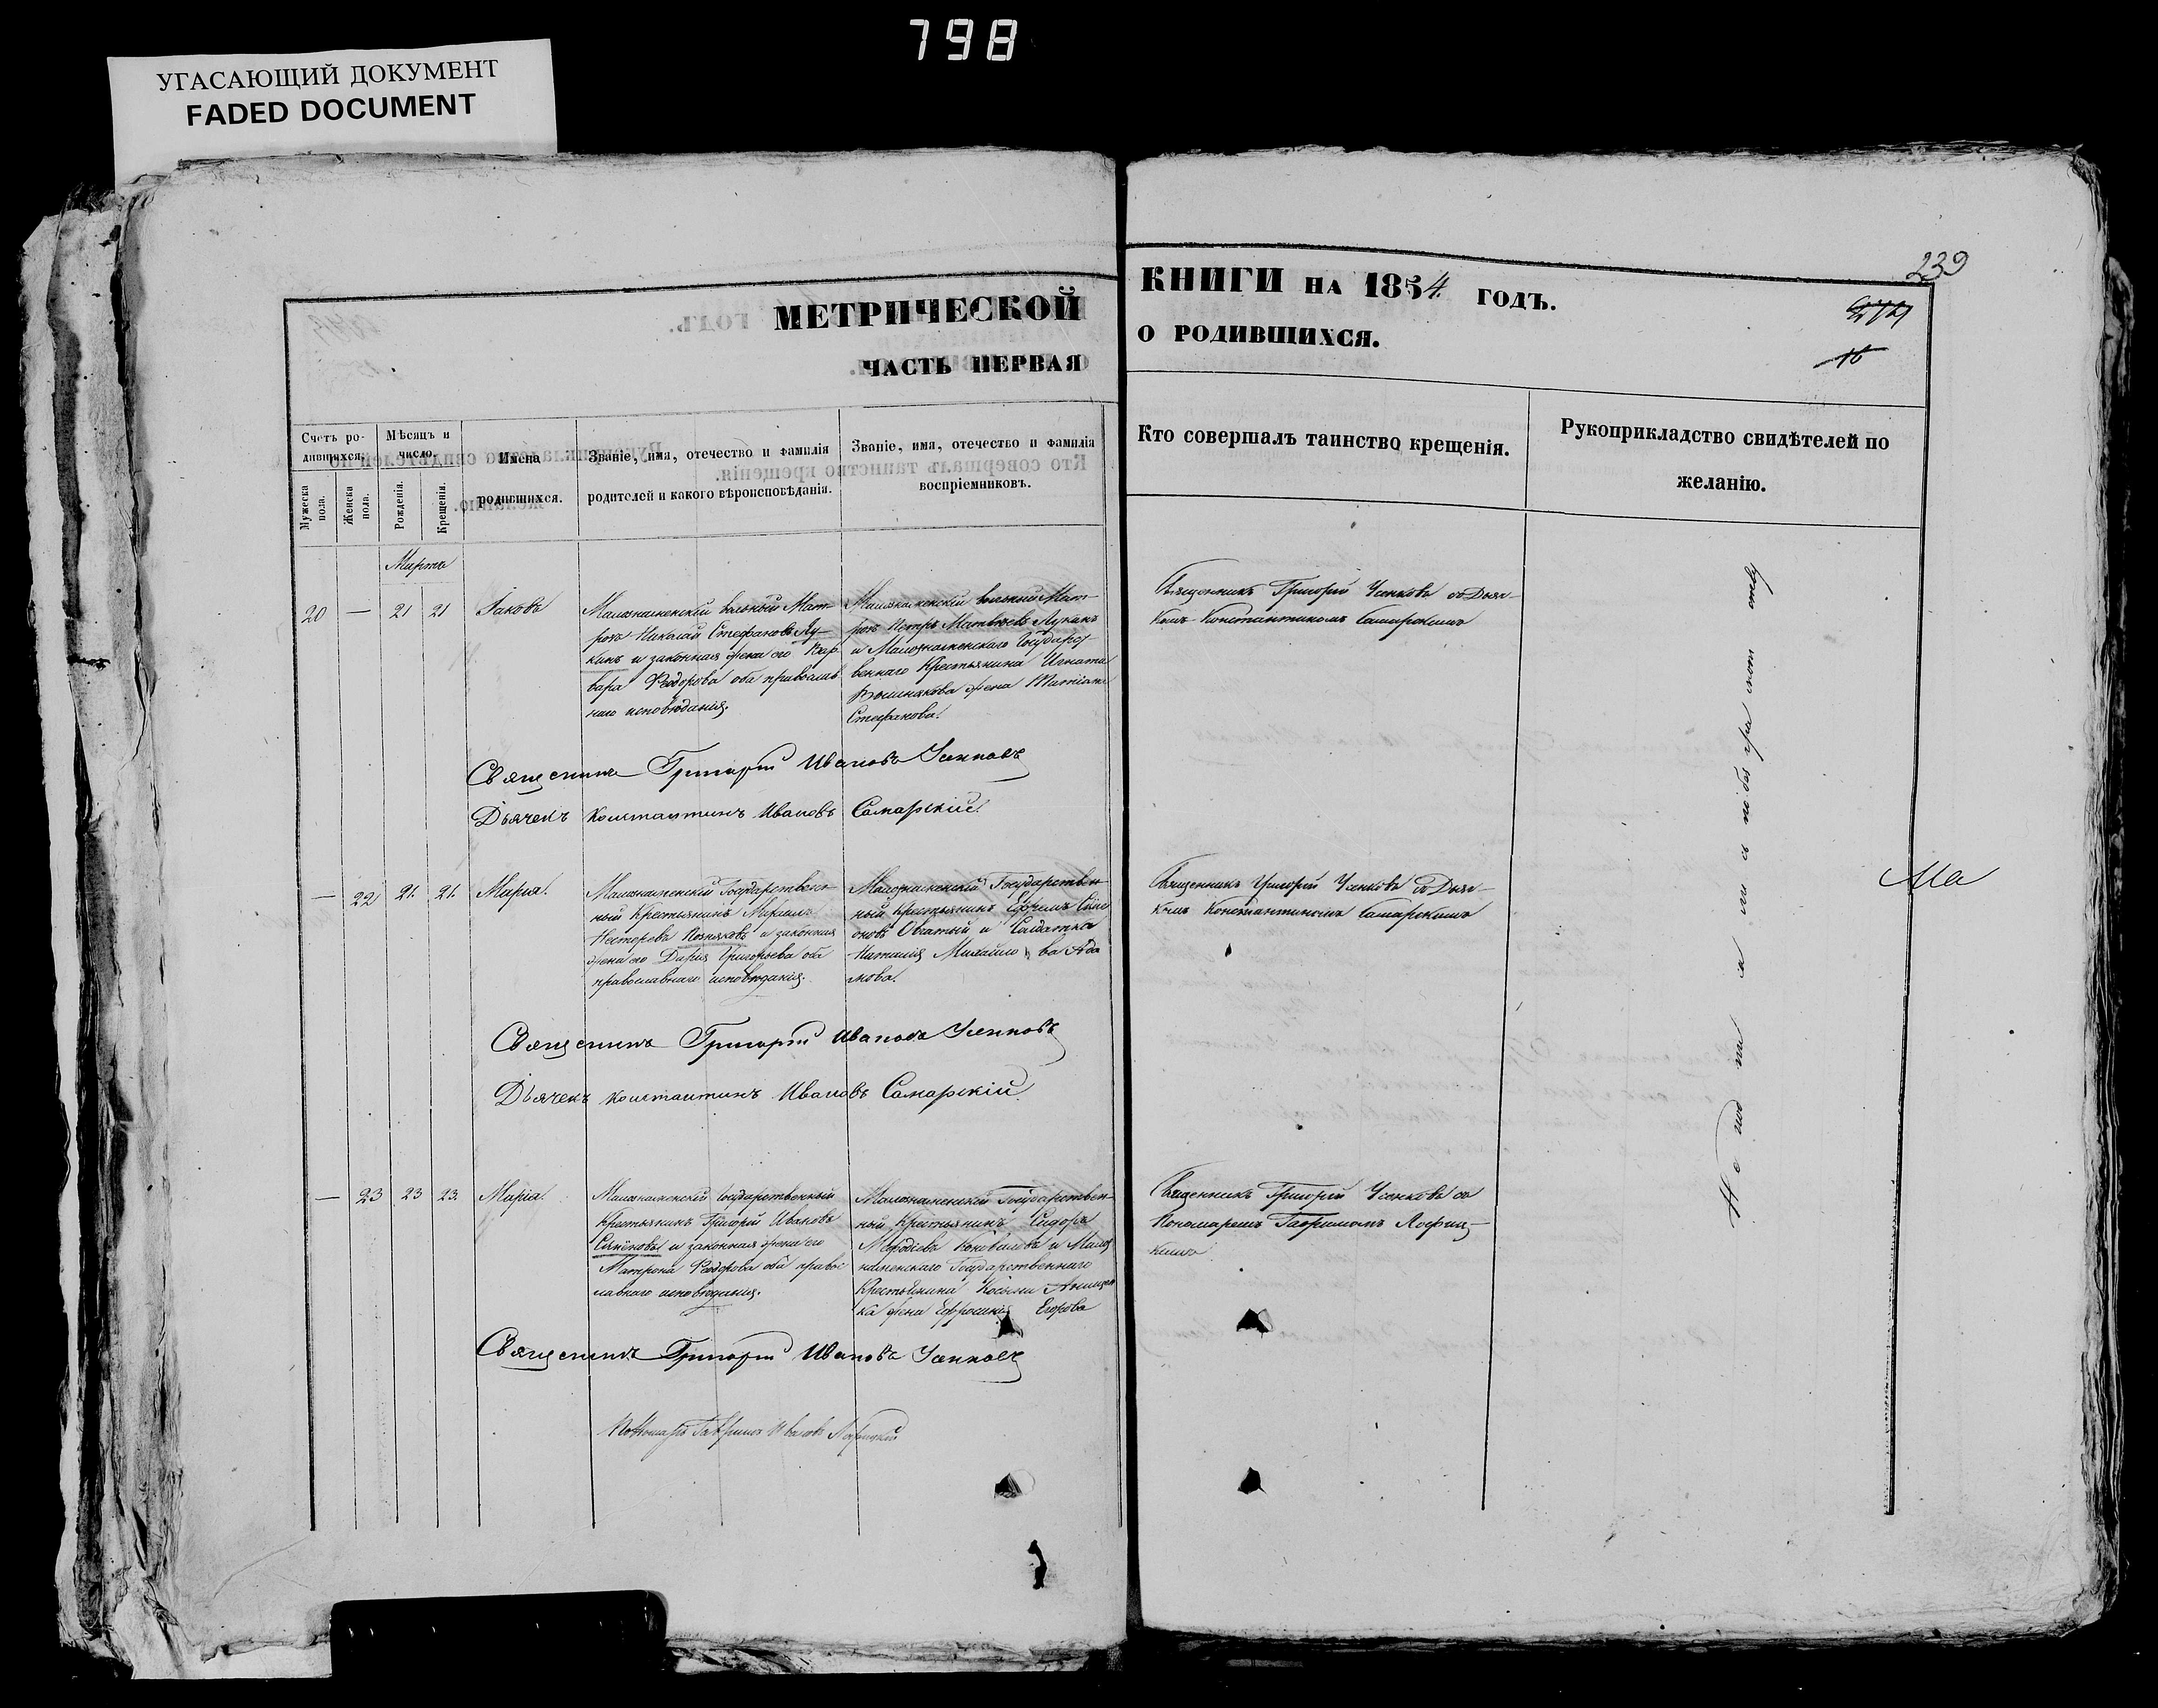 798
УГАСАЮЩИЙ ДОКУМЕНТ
FADED DOCUMENT
239
МЕТРИЧЕСКОЙ
ЧАСТЬ ПЕРВАЯ
КНИГИ НА 1854 ГОДЪ.
О РОДИВШИХСЯ.
16
Счетъ ро-
дившихся.
Мужеска пола.
Женска пола.
Мѣсяцъ и
число.
Рожденія.
Крещенія.
Имена
родившихся.
Званіе, имя, отечество и фамилія
родителей и какого вѣроисповѣданія.
Званіе, имя, отечество и фамилія
воспріемниковъ.
Кто совершалъ таинство крещенія.
Рукоприкладство свидѣтелей по
желанію.
Марта
20 — 21 21 Іаковъ
Малознаменскій вольный Мат-
розъ Николай Стефановъ Лу-
кинъ и законная жена его Вар-
вара Ѳеодорова оба православ
наго исповѣданія.
Малознаменскій вольный Мат-
розъ Петръ Матвѣевъ Лукинъ
и Малознаменскаго Государст
веннаго Крестьянина Игната
Вишнякова жена Татіана
Стефанова.
Священникъ Григорій Усенковъ съ Дьяч-
комъ Константиномъ Самарскимъ
Священникъ Григорій Ивановъ Усенковъ
Дьячекъ Константинъ Ивановъ Самарскій.
— 22 21. 21. Марія.
Малознаменскій Государствен-
ный Крестьянинъ Михаилъ
Нестеровъ Позняковъ и законная
жена его Дарія Григорьева оба
православнаго исповѣданія.
Малознаменскій Государствен-
ный Крестьянинъ Ефремъ Сим
оновъ и Солдатка
Наталія Михайлова Ада
мова.
Священникъ Григорій Усенковъ съ Дьяч-
комъ Константиномъ Самарскимъ
Ма
Священникъ Григорій Ивановъ Усенковъ
Дьячекъ Константинъ Ивановъ Самарскій.
— 23 23 23. Марія.
Малознаменскій Государственный
Крестьянинъ Григорій Ивановъ
и законная жена его
Матрона Ѳеодорова оба правос
лавнаго исповѣданія.
Малознаменскій Государствен-
ный Крестьянинъ Сидоръ
Коноваловъ и Малоз
наменскаго Государственнаго
Крестьянина Космы
ка жена Ефросинія Егорова
Священникъ Григорій Усенковъ съ
Пономаремъ Гавриломъ
Священникъ Григорій Ивановъ Усенковъ
Пономарь Гаврилъ Ивановъ